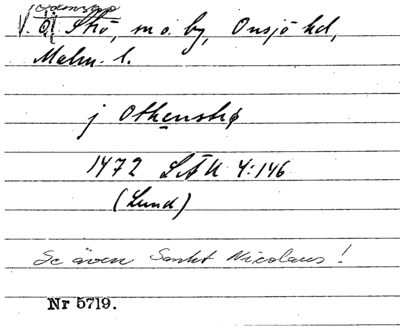 V. Skö, sn o. by, Onsjö hd,
Malm. l.
j Othenskø
1472 LÄU 4:146
(Lund)
Se även Sankt Nicolaus!
Nr 5719.